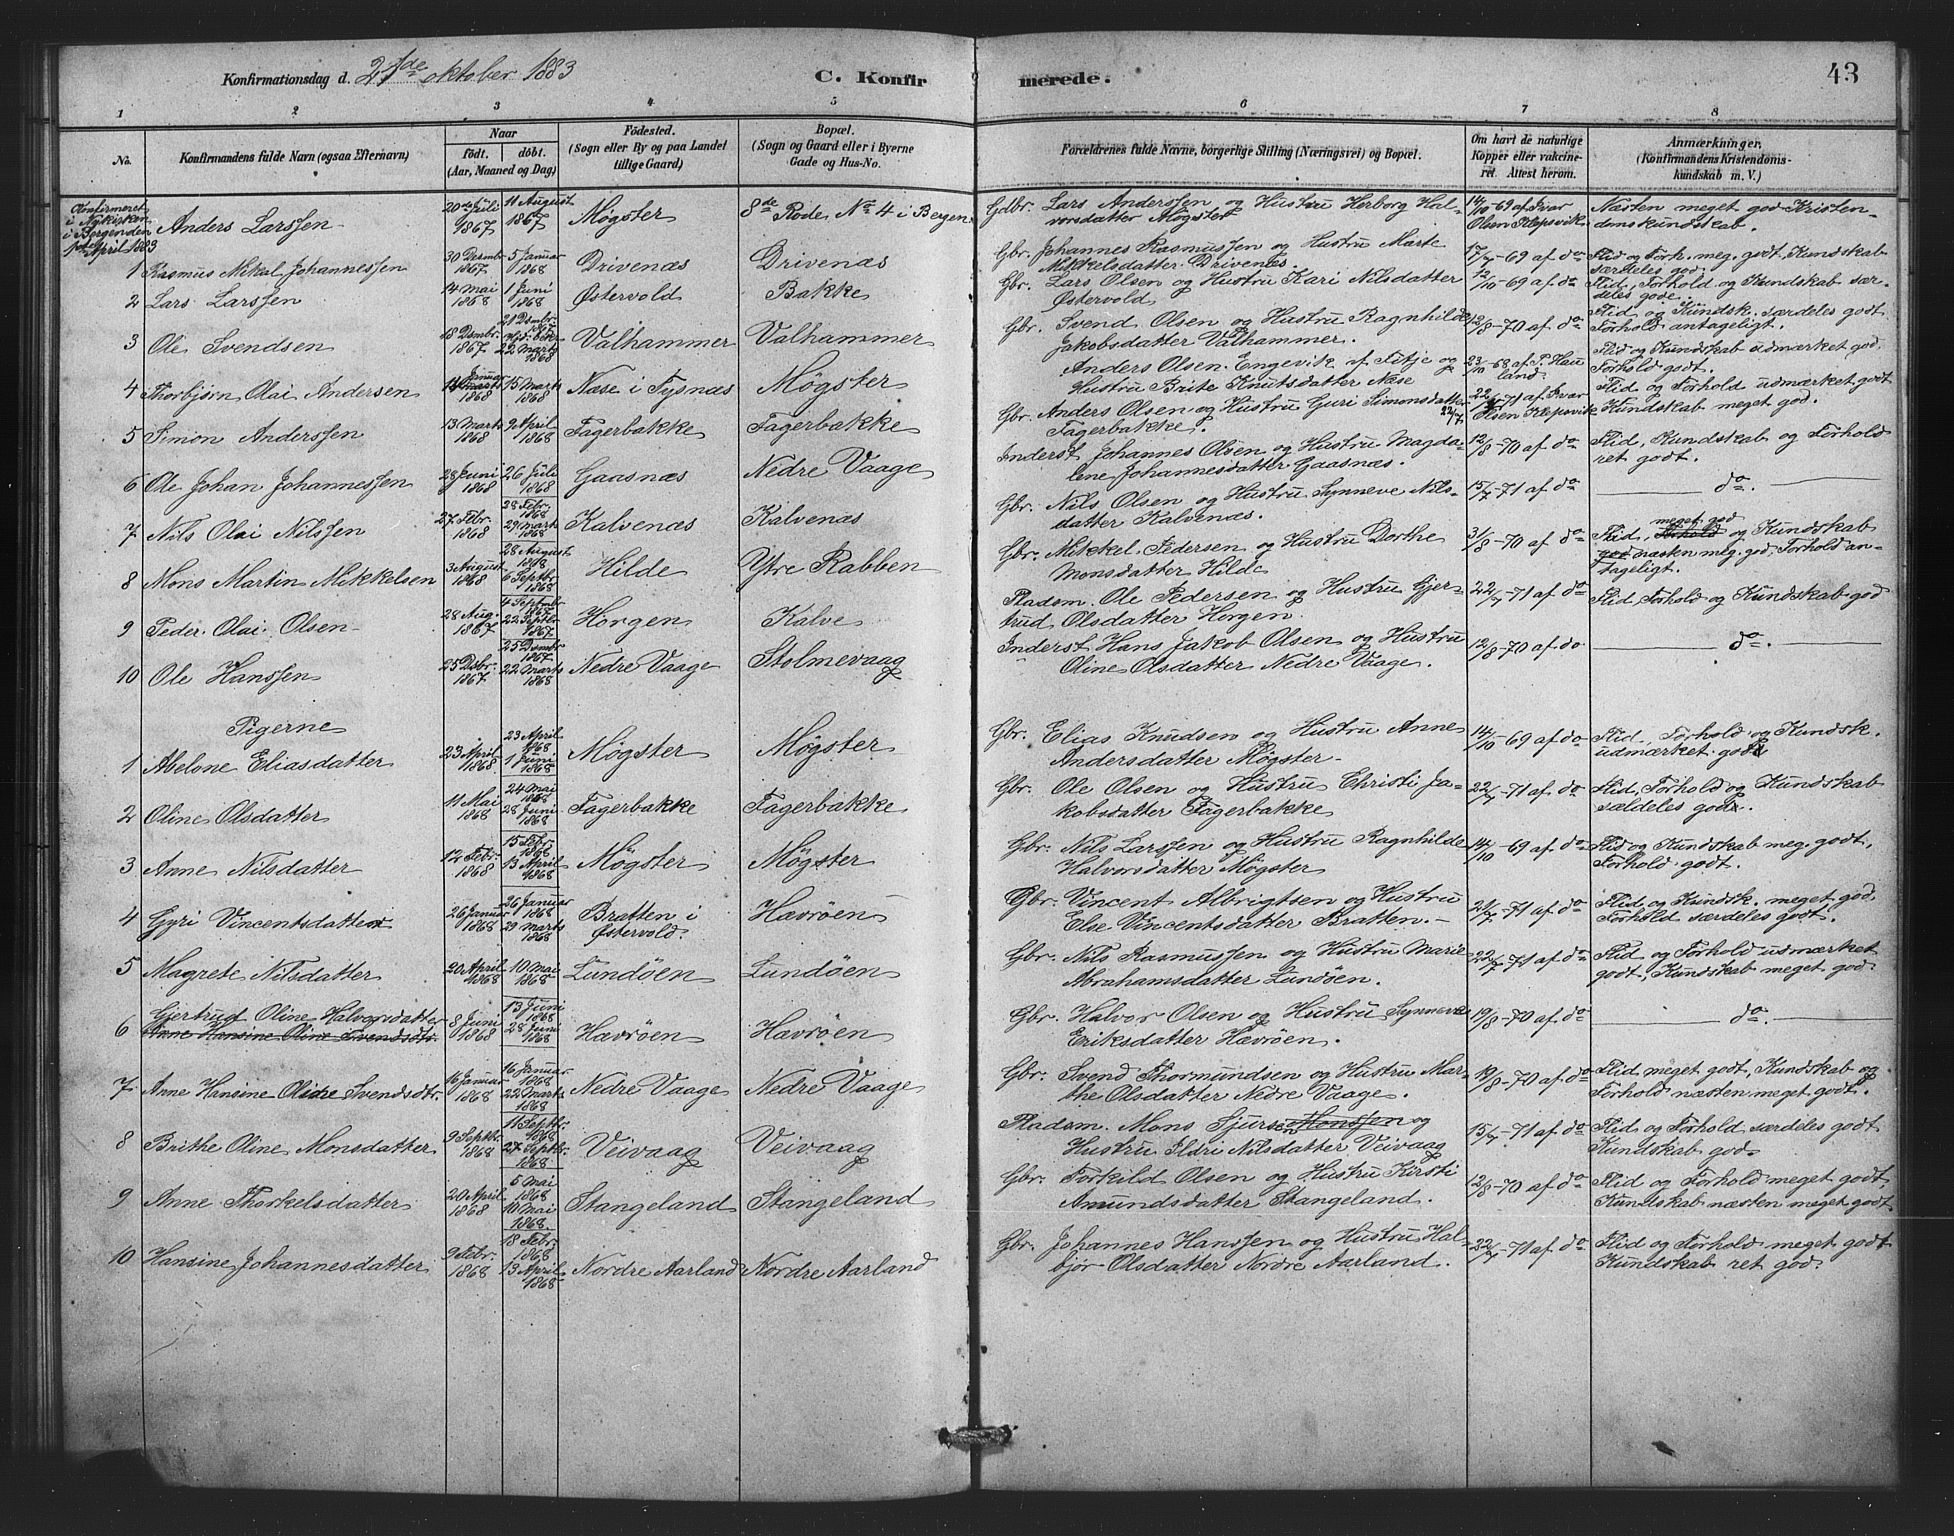 Konfirmationsdag d. 21de oktober 1883 C. Konfirmerede. 43
1 2 3 4 5 6 7 8
No. Konfirmandens fulde Navn (ogsaa Efternavn) Naar födt. döbt. (Aar, Maaned og Dag) Födested. (Sogn eller By og paa Landet tillige Gaard) Bopæl. (Sogn og Gaard eller i Byerne Gade og Hus-No. Forældrenes fulde Navne, borgerlige Stilling (Næringsvei) og Bopæl. Om havt de naturlige Kopper eller vakcineret. Attest herom. Anmærkninger, (Konfirmandens Kristendomskundskab m. V.)
Konfirmeret i Nykirken i Bergen den April 1883 Anders Larssen 20de Juli 1867 11 August 1867 Møgster 8de Rode, No 4 i Bergen Gdbr. Lars Anderssen og Hustru Herborg Halvorsdatter Møgster 14/10-69 af Ivar Olsen Klepsvik Næsten meget god Kristendomskundskab.
1 Rasmus Mikal Johannessen 30 Desmbr. 1867 5 Januar 1868 Drivenæs Drivenæs Gbr. Johannes Rasmussen og Hustru Marte Mikkelsdatter Drivenæs. 17/7-69 af do Flid og Forh. meg. godt, Kundskab særdeles god.
2 Lars Larssen 14 Mai 1868 1 Juni 1868 Østervold Bakke Gbr. Lars Olsen og Hustru Kari Nilsdatter Østervold 12/10-69 af do Flid, Forhold og Kundskab særdeles gode.
3 Ole Svendsen 18 Dsmbr. 1867 21 Dsmbr. 1867 22 Marts 1868 Valhammer Valhammer Gbr. Svend Olsen og Hustru Ragnhilde Jakobsdatter Valhammer. 12/8-70 af do Flid og Kundsk. særdeles godt Forhold antageligt.
4 Thorbjørn Olai Andersen 14 Januar 1868 15 Marts 1868 Næse i Tysnæs Møgster Anders Olsen Engevik af Fitje og Hustru Brite Knutsdatter Næse 23/10-68 af P. Hauland Flid og Kundskab udmærket god Forhold godt.
5 Simon Anderssen 13 Marts 1868 9 April 1868 Fagerbakke Fagerbakke Gbr. Anders Olsen og Hustru Guri Simonsdatter Fagerbakke. 22/7-71 af Ivar Olsen Klepsvik Flid og Forhold udmærket godt Kundskab meget god.
6 Ole Johan Johannessen 28 Juni 1868 26 Juli 1868 Gaasnæs Nedre Vaage Inderst Johannes Olsen og Hustru Magdalene Johannesdatter Gaasnæs. 12/8-70 af do Flid, Kundskab og Forhold ret godt.
7 Nils Olai Nilssen 27 Febr. 1868 28 Febr. 1868 29 Marts 1868 Kalvenæs Kalvenæs Gbr. Nils Olsen og Hustru Synneve Nilsdatter Kalvenæs. 15/7-71 af do do.
8 Mons Martin Mikkelsen 3 August 1868 28 August 1868 6 Septbr. 1868 Hilde Ytre Rabben Gbr. Mikkel Pedersen og Hustru Dorthe Monsdatter Hilde 31/8-70 af do Flid, meget god og Kundskab næsten meg. god, Forhold antageligt.
9 Peder Olai Olsen 28 Aug. 1867 4 Septmbr 1867 22 Septbr. 1867 Horgen Kalve Pladsm. Ole Pedersen og Hustru Gjertrud Olsdatter Horgen. 22/7-71 af do Flid, Forhold og Kundskab god
10 Ole Hanssen 25 Dsbr. 1867 25 Dsmbr. 1867 22 Marts 1868 Nedre Vaage Stolmevaag Inderst Hans Jakob Olsen og Hustru Oline Olsdatter Nedre Vaage. 12/8-70 af do do.
Pigerne
1 Abelone Eliasdatter 23 April 1868 23 April 1868 1 Juni 1868 Møgster Møgster Gbr. Elias Knudsen og Hustru Anne Andersdatter Møgster 14/10-69 af do Flid, Forhold og Kundsk. udmærket godt
2 Oline Olsdatter 11 Mai 1868 24 Mai 1868 28 Juni 1868 Fagerbakke Fagerbakke Gbr. Ole Olsen og Hustru Christi Jakobsdatter Fagerbakke 22/7-71 af do Flid, Forhold og Kundskab sældeles gode.
3 Anne Nilsdatter 12 Febr. 1868 15 Febr. 1868 13 April 1868 Møgster Møgster Gbr. Nils Larssen og Hustru Ragnhilde Halvorsdatter Møgster 14/10-69 af do Flid og Kundskab meg. godt, Forhold godt.
4 Gyri Vincentsdatter 26 Januar 1868 26 Januar 1868 29 Marts 1868 Bratten i Østervold. Hævrøen Gbr. Vincent Albrigtsen og Hustru Else Vincentsdatter Bratten. 21/7-71 af do Flid og Kundsk. meget god, Forhold særdeles godt.
5 Magrete Nilsdatter 20 April 1868 10 Mai 1868 Lundøen Lundøen Gbr. Nils Rasmussen og Hustru Marie Abrahamsdatter Lundøen. 22/7-71 af do Flid og Forhold udmærket godt, Kundskab meget god
6 Gjertrud Oline Halvorsdatter Anne Hansine Oline Svendsdtr. 8 Juni 1868 13 Juni 1868 28 Juni 1868 Hævrøen Hævrøen Gbr. Halvor Olsen og Hustru Synneve Eriksdatter Hævrøen. 19/8-70 af do do.
7 Anne Hansine Oline Svendsdtr. 16 Januar 1868 16 Januar 1868 22 Marts 1868 Nedre Vaage Nedre Vaage Gbr. Svend Thormundsen og Hustru Marthe Olsdatter Nedre Vaage. 19/8-70 af do Flid meget godt, Kundskab og Forhold næsten meget godt.
8 Brithe Oline Monsdatter 9 Septbr. 1868 11 Septbr. 1868 27 Septbr. 1868 Veivaag Veivaag Pladsm. Mons Sjursen Monssen og Hustru Eldri Nilsdatter Veivaag 15/7-71 af do Flid og Forhold særdeles godt Kundskab god
9 Anne Thorkelsdatter 20 April 1868 5 Mai 1868 10 Mai 1868 Stangeland Stangeland Gbr. Torkild Olsen og Hustru Kirsti Amundsdatter Stangeland. 12/8-70 af do Flid og Forhold meget godt, Kundskab næsten meget godt
10 Hansine Johannesdatter 9 Febr. 1868 18 Febr. 1868 13 April 1868 Nordre Aarland Nordre Aarland Gbr. Johannes Hanssen og Hustru Halbjør Olsdatter Nordre Aarland. 22/7-71 af do Flid og Forhold meget godt Kundskab ret god.